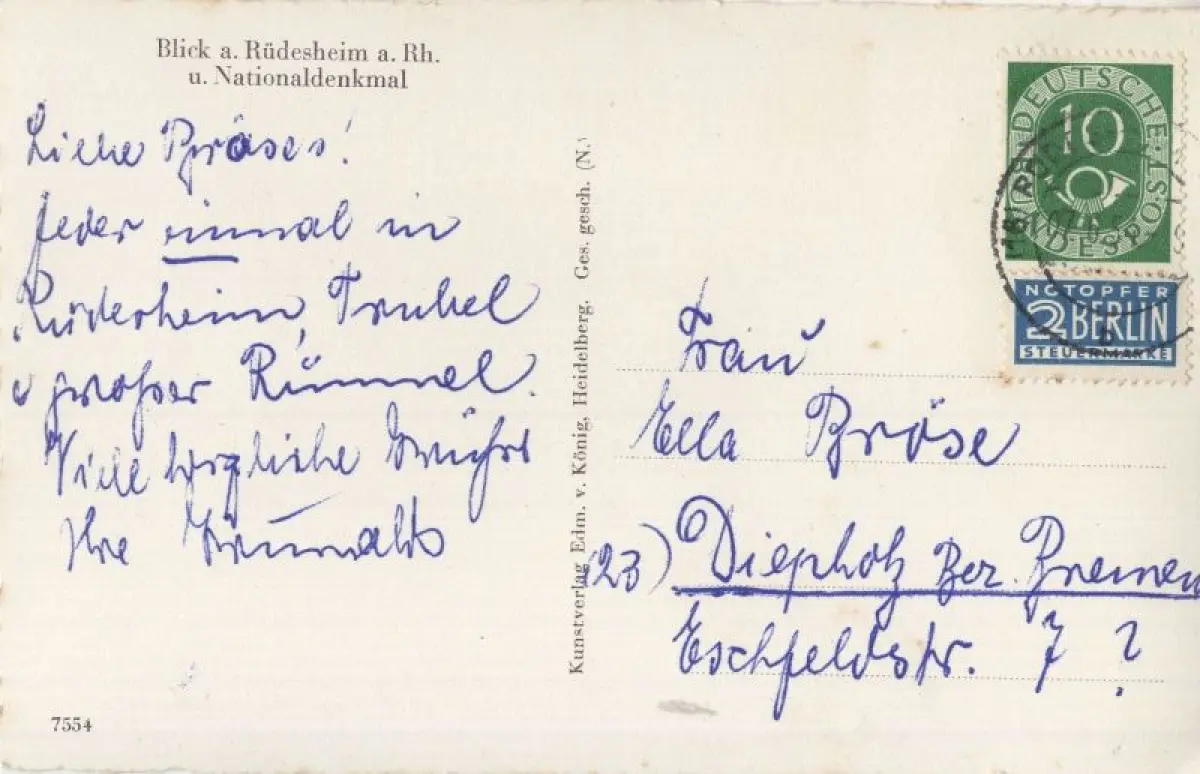 Blick a. Rüdesheim a. Rh.
u. Nationaldenkmal
Liebe Bröses!
Jeder einmal in
Rüdesheim, Trubel
u großer Rummel.
Viele herzliche Grüße
Ihre Grunwalds
7554
Kunstverlag Edm. v. König, Heidelberg. Ges. gesch. (N.)
DEUTSCHE
10
BUNDESPOST
NOTOPFER
2 BERLIN
STEUERMARKE
Frau
Ella Bröse
(23) Diepholz Bez. Bremen
Eschfeldstr. 7 ?